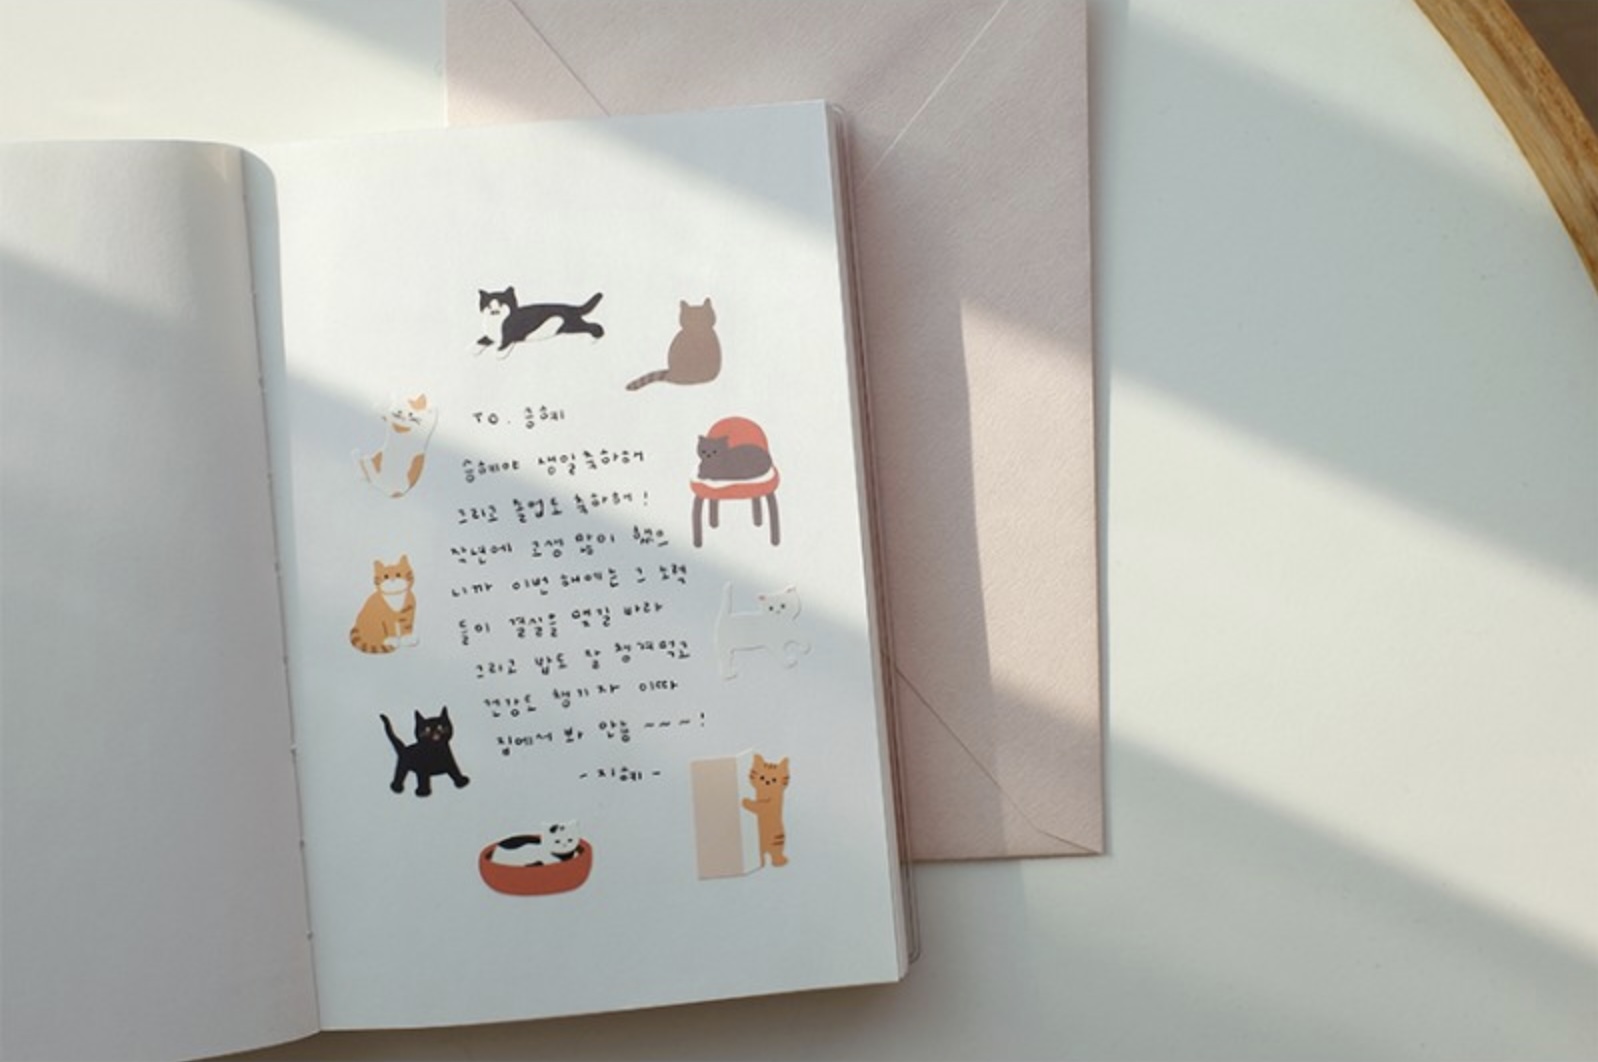 TO. 승혜
승혜야 생일축하해
그리고 졸업도 축하해!
작년에 고생 많이 했으
니까 이번 해에는 그 노력
들이 결실을 맺길 바라
그리고 밥도 잘 챙겨먹고
건강도 챙기자 이따
집에서 봐 안뇽~~~!
-지혜-